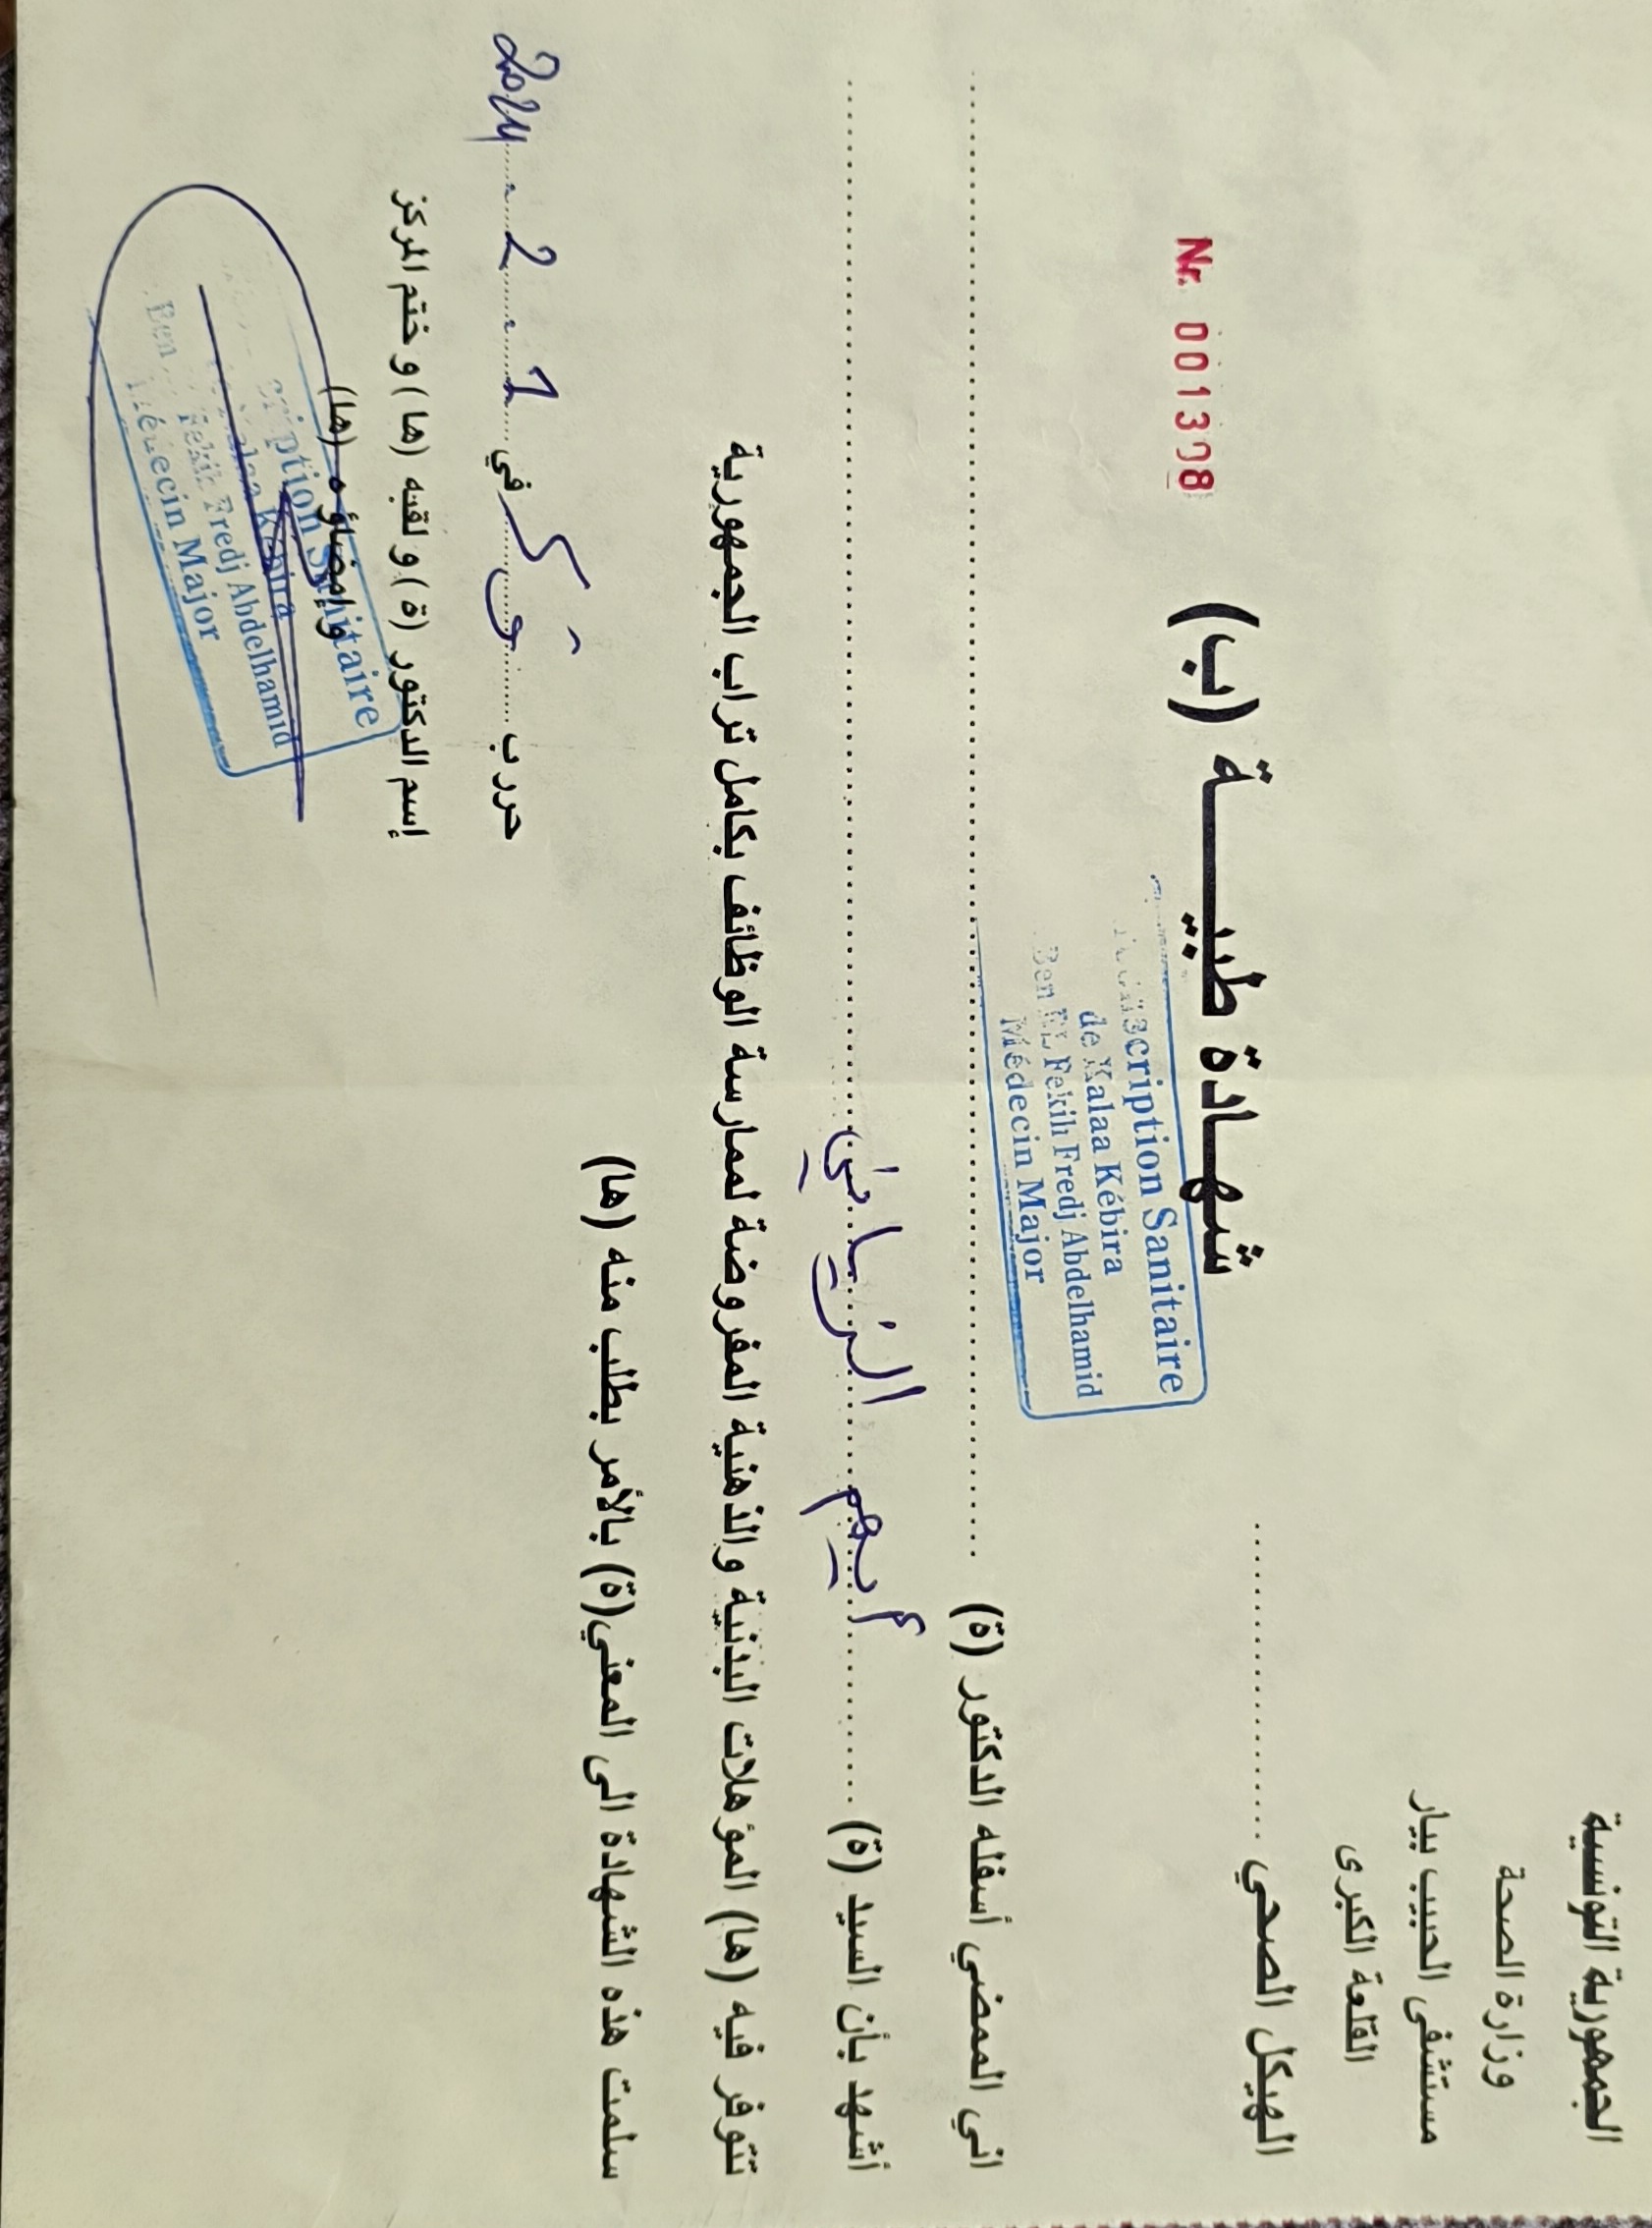 الجمهورية التونسية
وزارة الصحة
مستشفى الحبيب بيار
القلعة الكبرى
الهيكل الصحي ....................
Nr. 001398
شهادة طبية (ب)
cription Sanitaire
de Kalaa Kébira
Ben EL Fekih Fredj Abdelhamid
Médecin Major
اني الممضي أسفله الدكتور (ة) ....................
أشهد بأن السيد (ة) .......... أيهم الزياني ....................
تتوفر فيه (ها) المؤهلات البدنية والذهنية المفروضة لممارسة الوظائف بكامل تراب الجمهورية
سلمت هذه الشهادة الى المعني(ة) بالأمر بطلب منه (ها)
حرر ب ق ك في 1 - 2 - 2024
إسم الدكتور (ة) و لقبه (ها) و ختم المركز
وإمضاؤه (ها)
ription Sanitaire
Kalaa Kébira
Ben Fekih Fredj Abdelhamid
Médecin Major